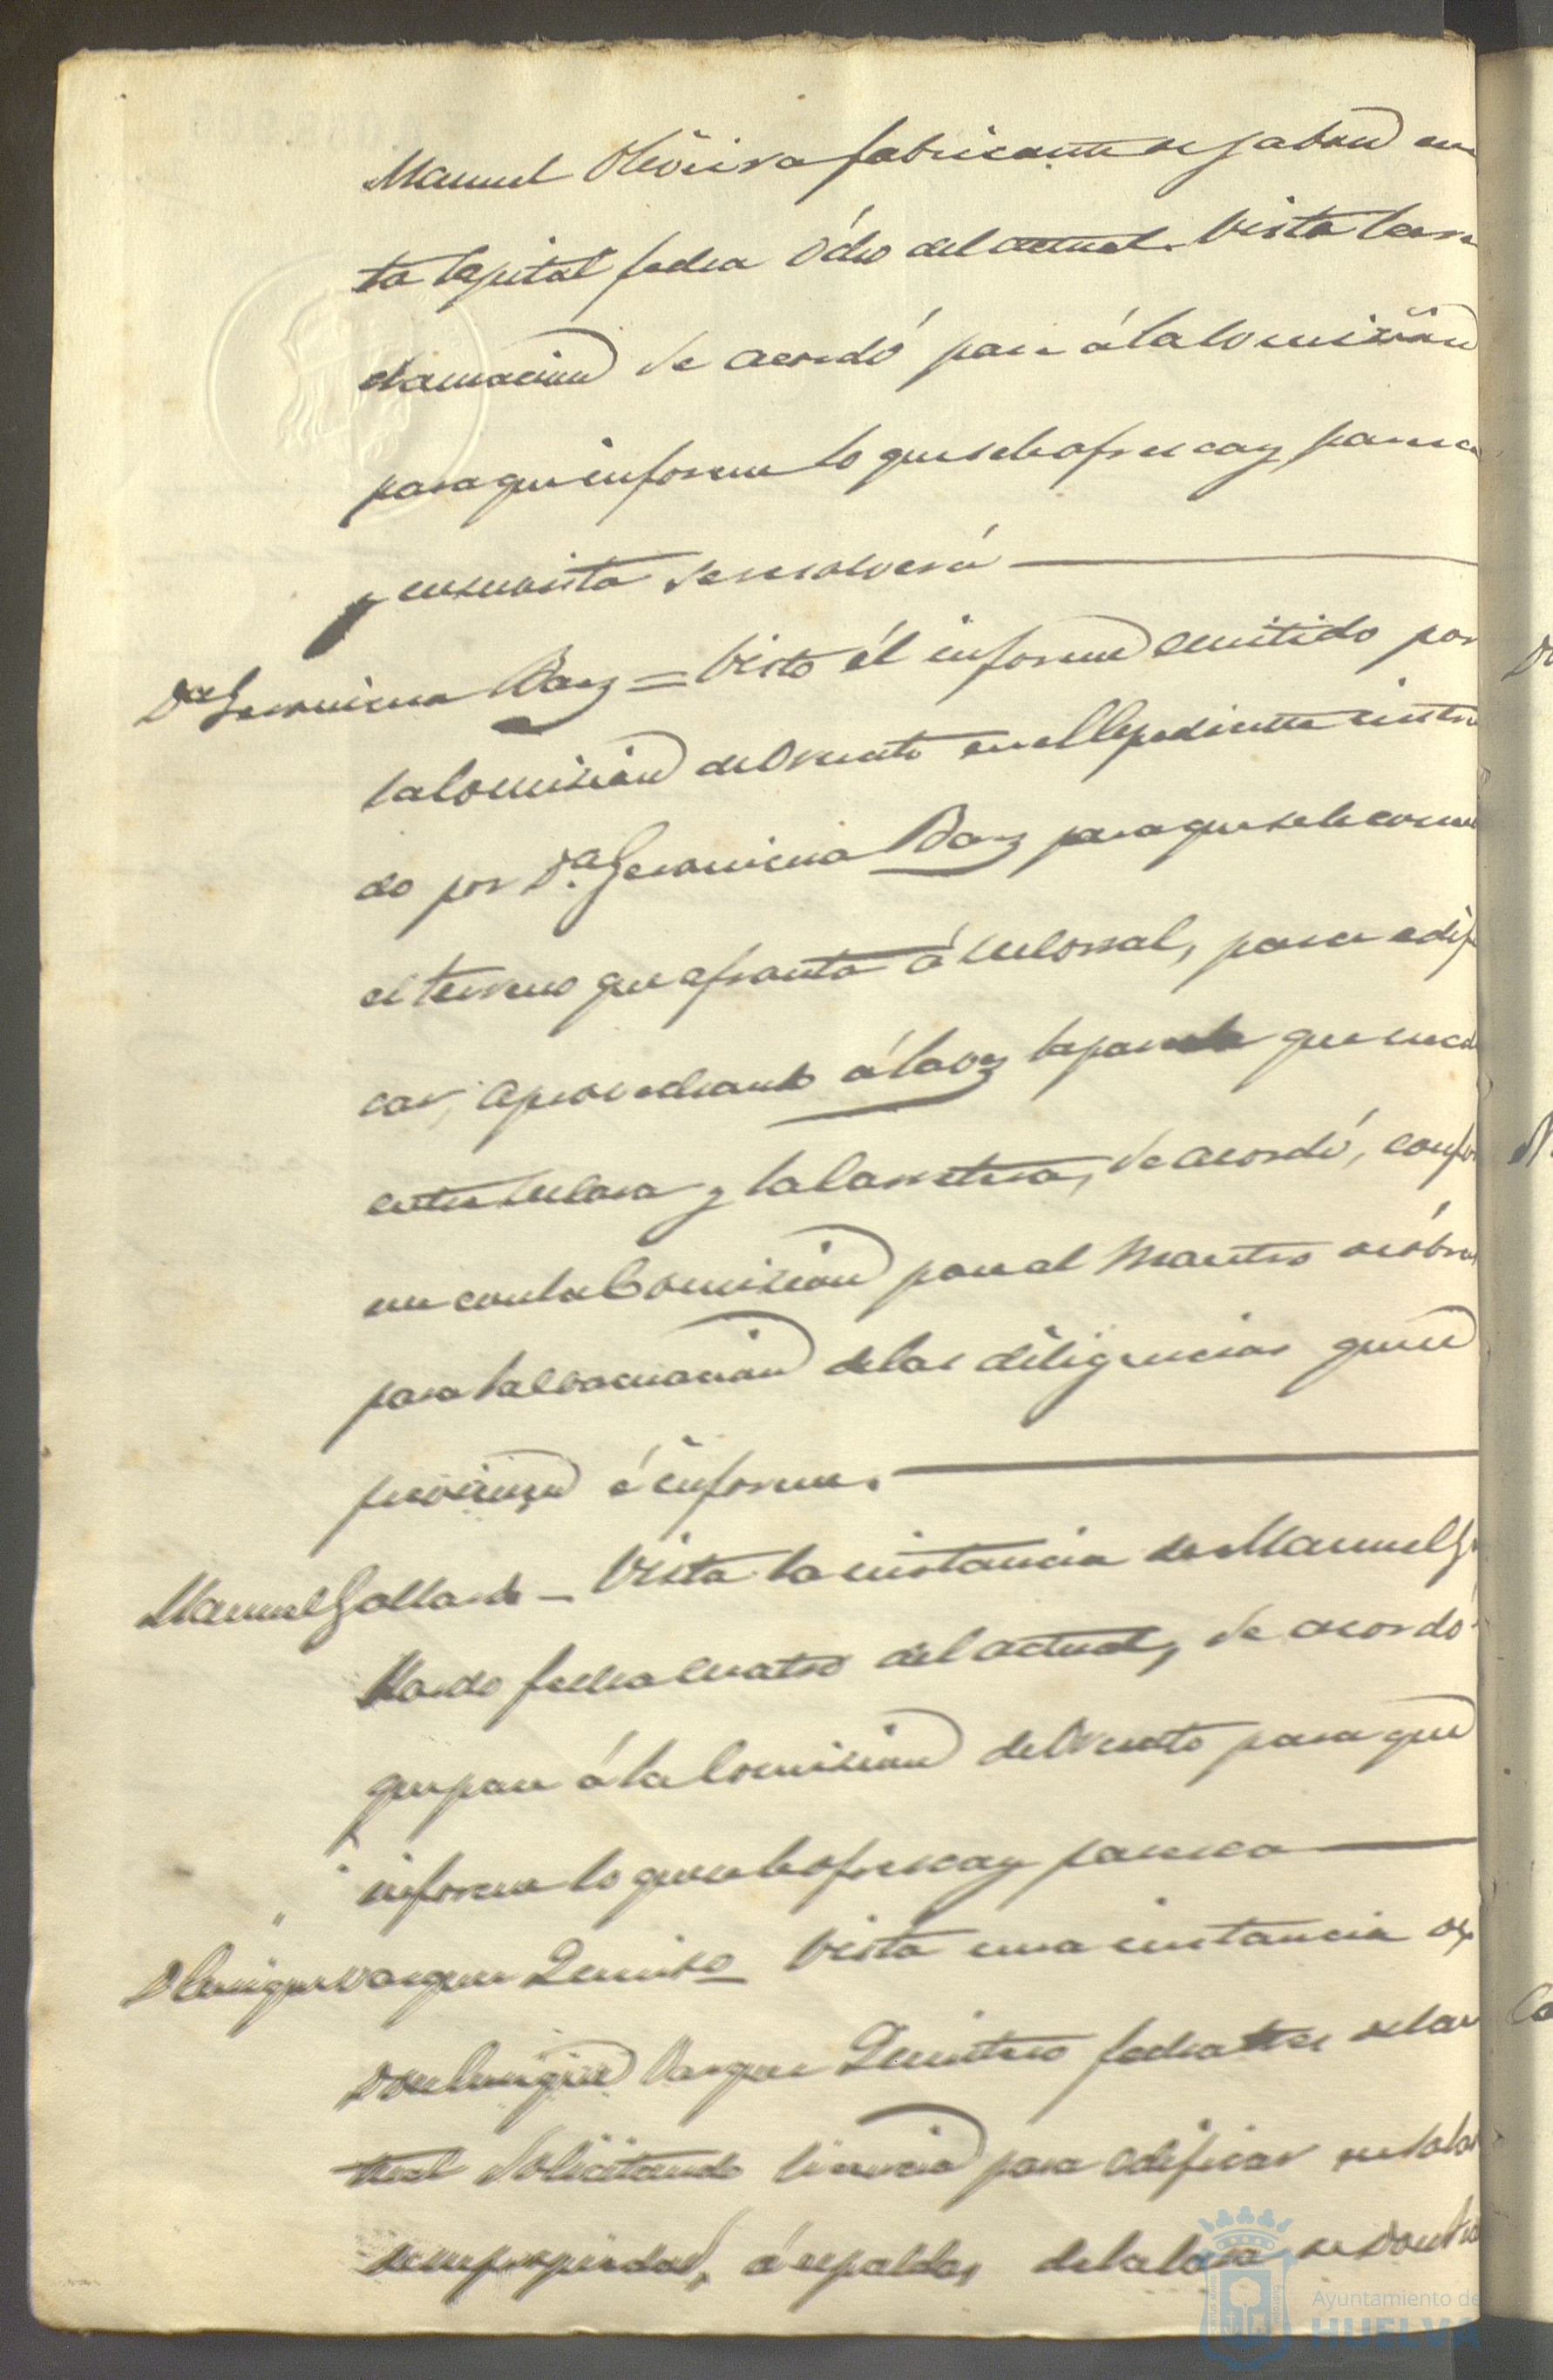 Manuel Oliveira fabricante de jabon en
ta Capital fecha ocho del actual. Vista la re
clamacion se acordó pase á la Comision
para que informe lo que se le ofrezca y parezca
y en su vista se resolverá
Dª Geronima Baz = Visto él informe emitido por
la Comision de Ornato en el Espediente instru
do por D.ª Geronima Baz para que se le conce
el terreno que afronta á su Corral, para edifi
car, aprovechando á la vez la pared que
entre su Casa y la Carretera, se acordó, confor
me con la Comision pase al Maestro de óbras
para la evacuacion de las diligencias que se
previenen é informe.
Manuel Gallardo - Vista la instancia de Manuel Ga
llardo fecha cuatro del actual, se acordó
que pase á la Comision de Ornato para que
informe lo que se le ofrezca y parezca
D Enrique Vazquez Quintero Vista una instancia de
Don Enrique Vazquez Quintero fecha tres del ac
tual solicitando licencia para edificar en solar
de su propiedad, á espaldas de la Casa de Don
Ayuntamiento de
HUELVA